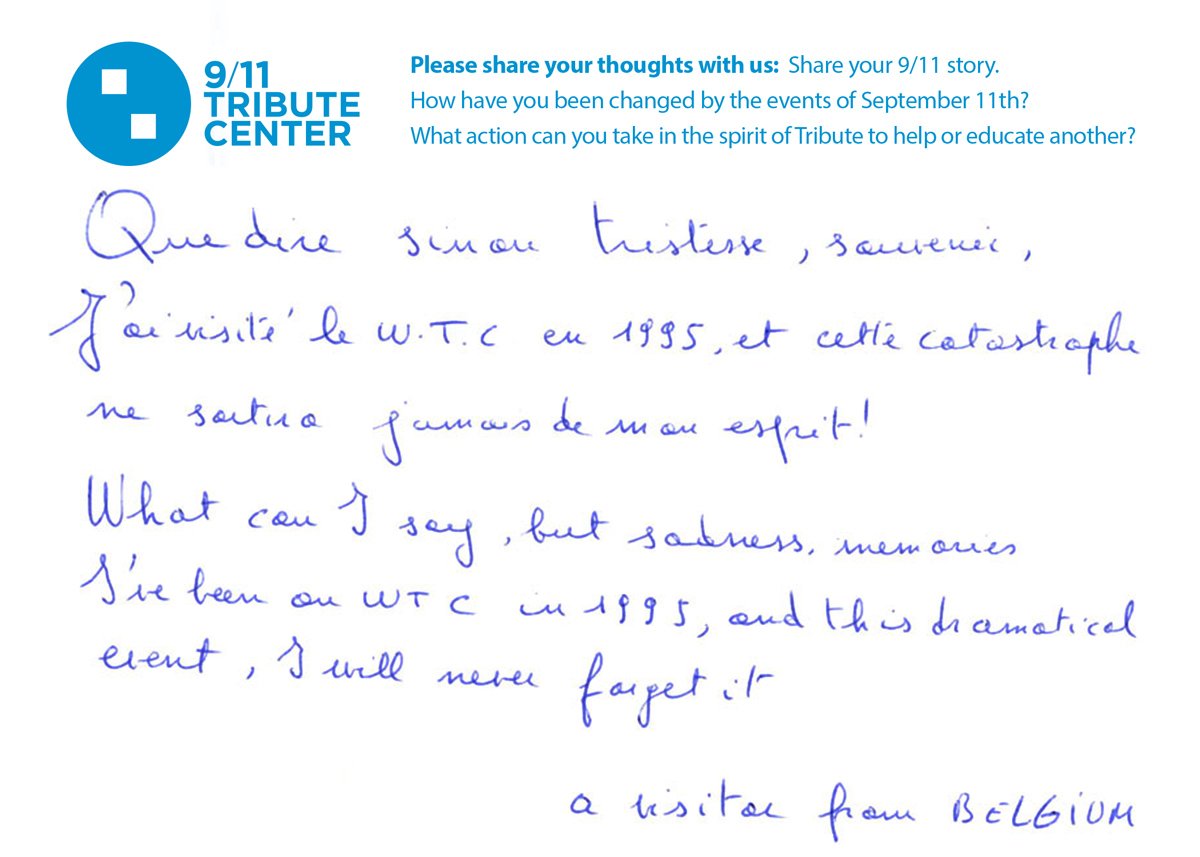 9/11
TRIBUTE
CENTER
Please share your thoughts with us: Share your 9/11 story.
How have you been changed by the events of September 11th?
What action can you take in the spirit of Tribute to help or educate another?
Que dire sinon tristesse, souvenir,
J'ai visité le W.T.C en 1995, et cette catastrophe
ne sortira jamais de mon esprit!
What can I say, but sadness, memories
I've been on WTC in 1995, and this dramatical
event, I will never forget it
a visitor from BELGIUM